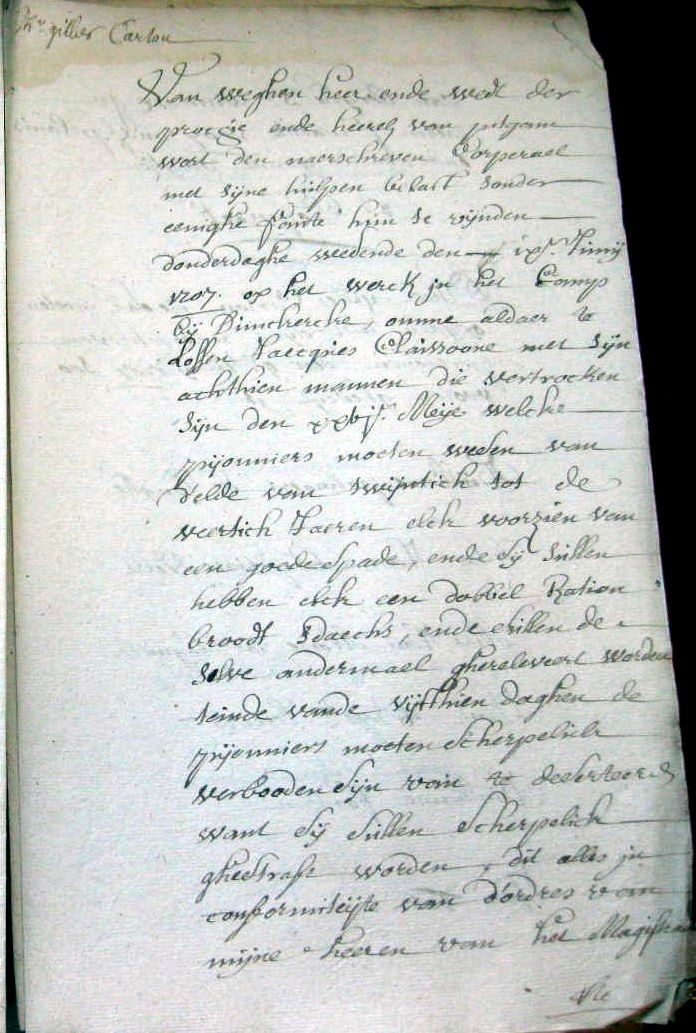 gillies Carton
Van weghen heer ende wedt der
prochie ende heerel van pitgam
wort den naerschreven Corperael
met syne hulpen belast sonder
eenighe faute hun te vynden
donderdaghe wesende den ixs. Juny
1707. op het werck jn het Camp
by Dunckercke, omme aldaer te
Lossen Jaecques Claissoone met syn
achthien mannen die vertrocken
syn den xxvjs. Meye welcke
pijonniers moeten wesen van
d'elde van twyntich tot de
veertich Jaeren elck voorzien van
een goede spade, ende sy sullen
hebben elck een dobbel Ration
broodt sdaechs, ende sullen de
selve andermael ghereleveert worden
teinde vande vijfthien daghen de
pijonniers moeten scherpelick
verbooden syn van te deserteeren
want sy sullen scherpelick
ghestraft worden, dit alles jn
conformiteijte van d'ordres van
mijne heeren van het Magistraet